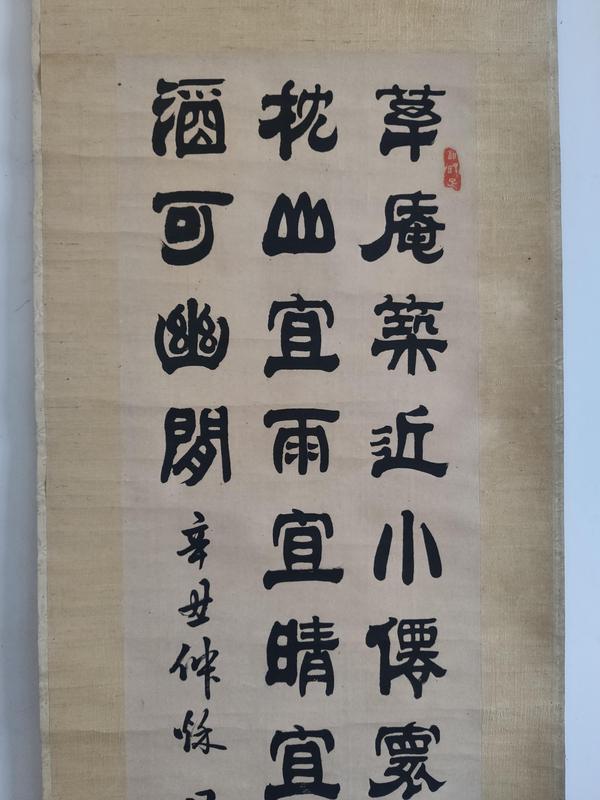 草庵築近小僊寰
枕山宜雨宜晴宜
酒可幽閒 辛丑仲秋